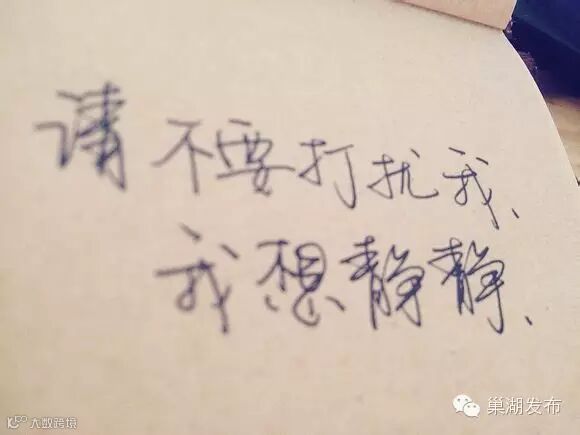 请不要打扰我、
我想静静、
巢湖发布
大数跨境